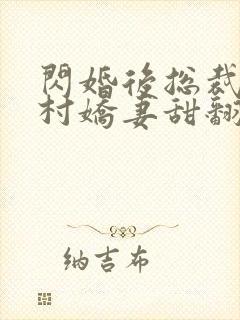 閃婚後總裁
村嬌妻甜翻
纳吉布